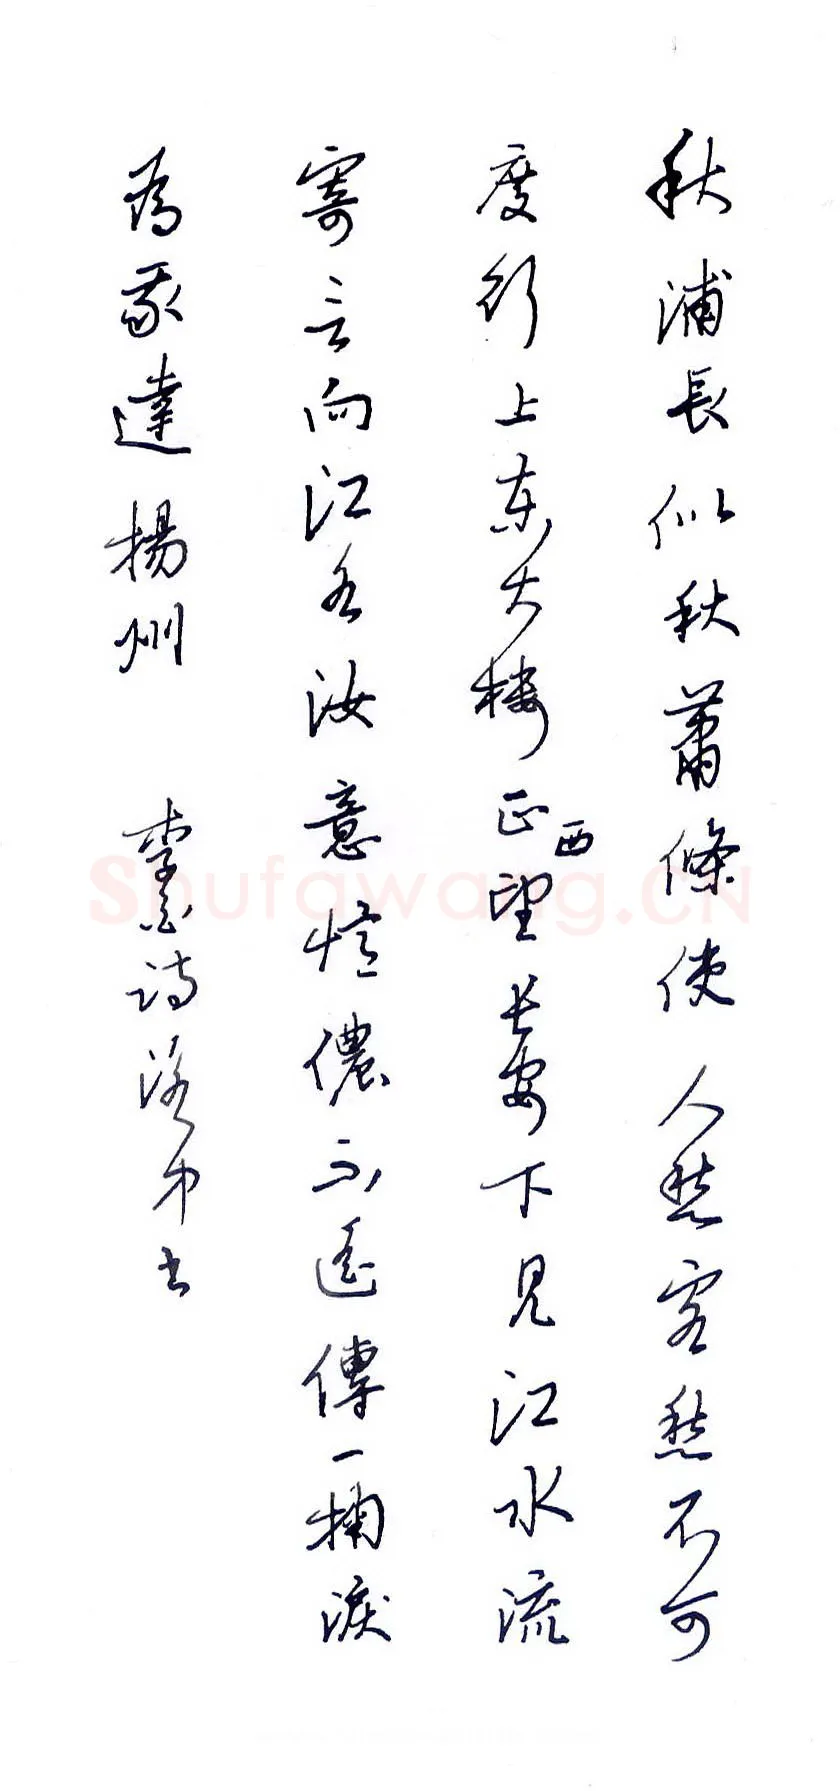 秋浦長似秋蕭條使人愁客愁不可
度行上东大楼正西望长安下見江水流
寄言向江水汝意憶儂不遥傳一掬淚
為我達揚州
李白诗
书
Shufawang.CN